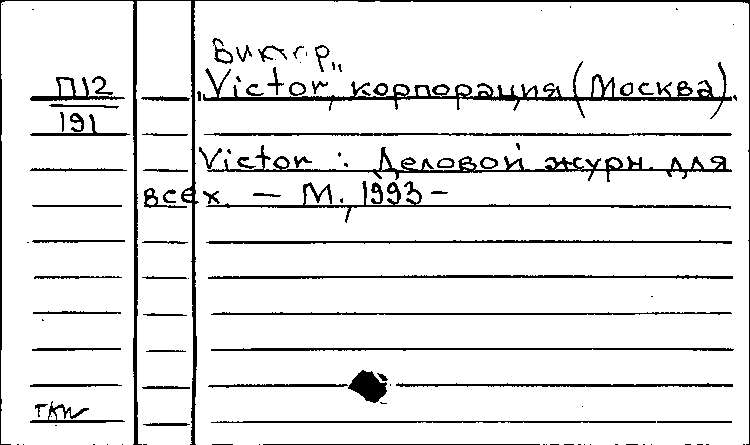 Виктор
П12
„Victor”, корпорация (Москва).
191
Victor : Деловой журн. для
всех. — М., 1993 –